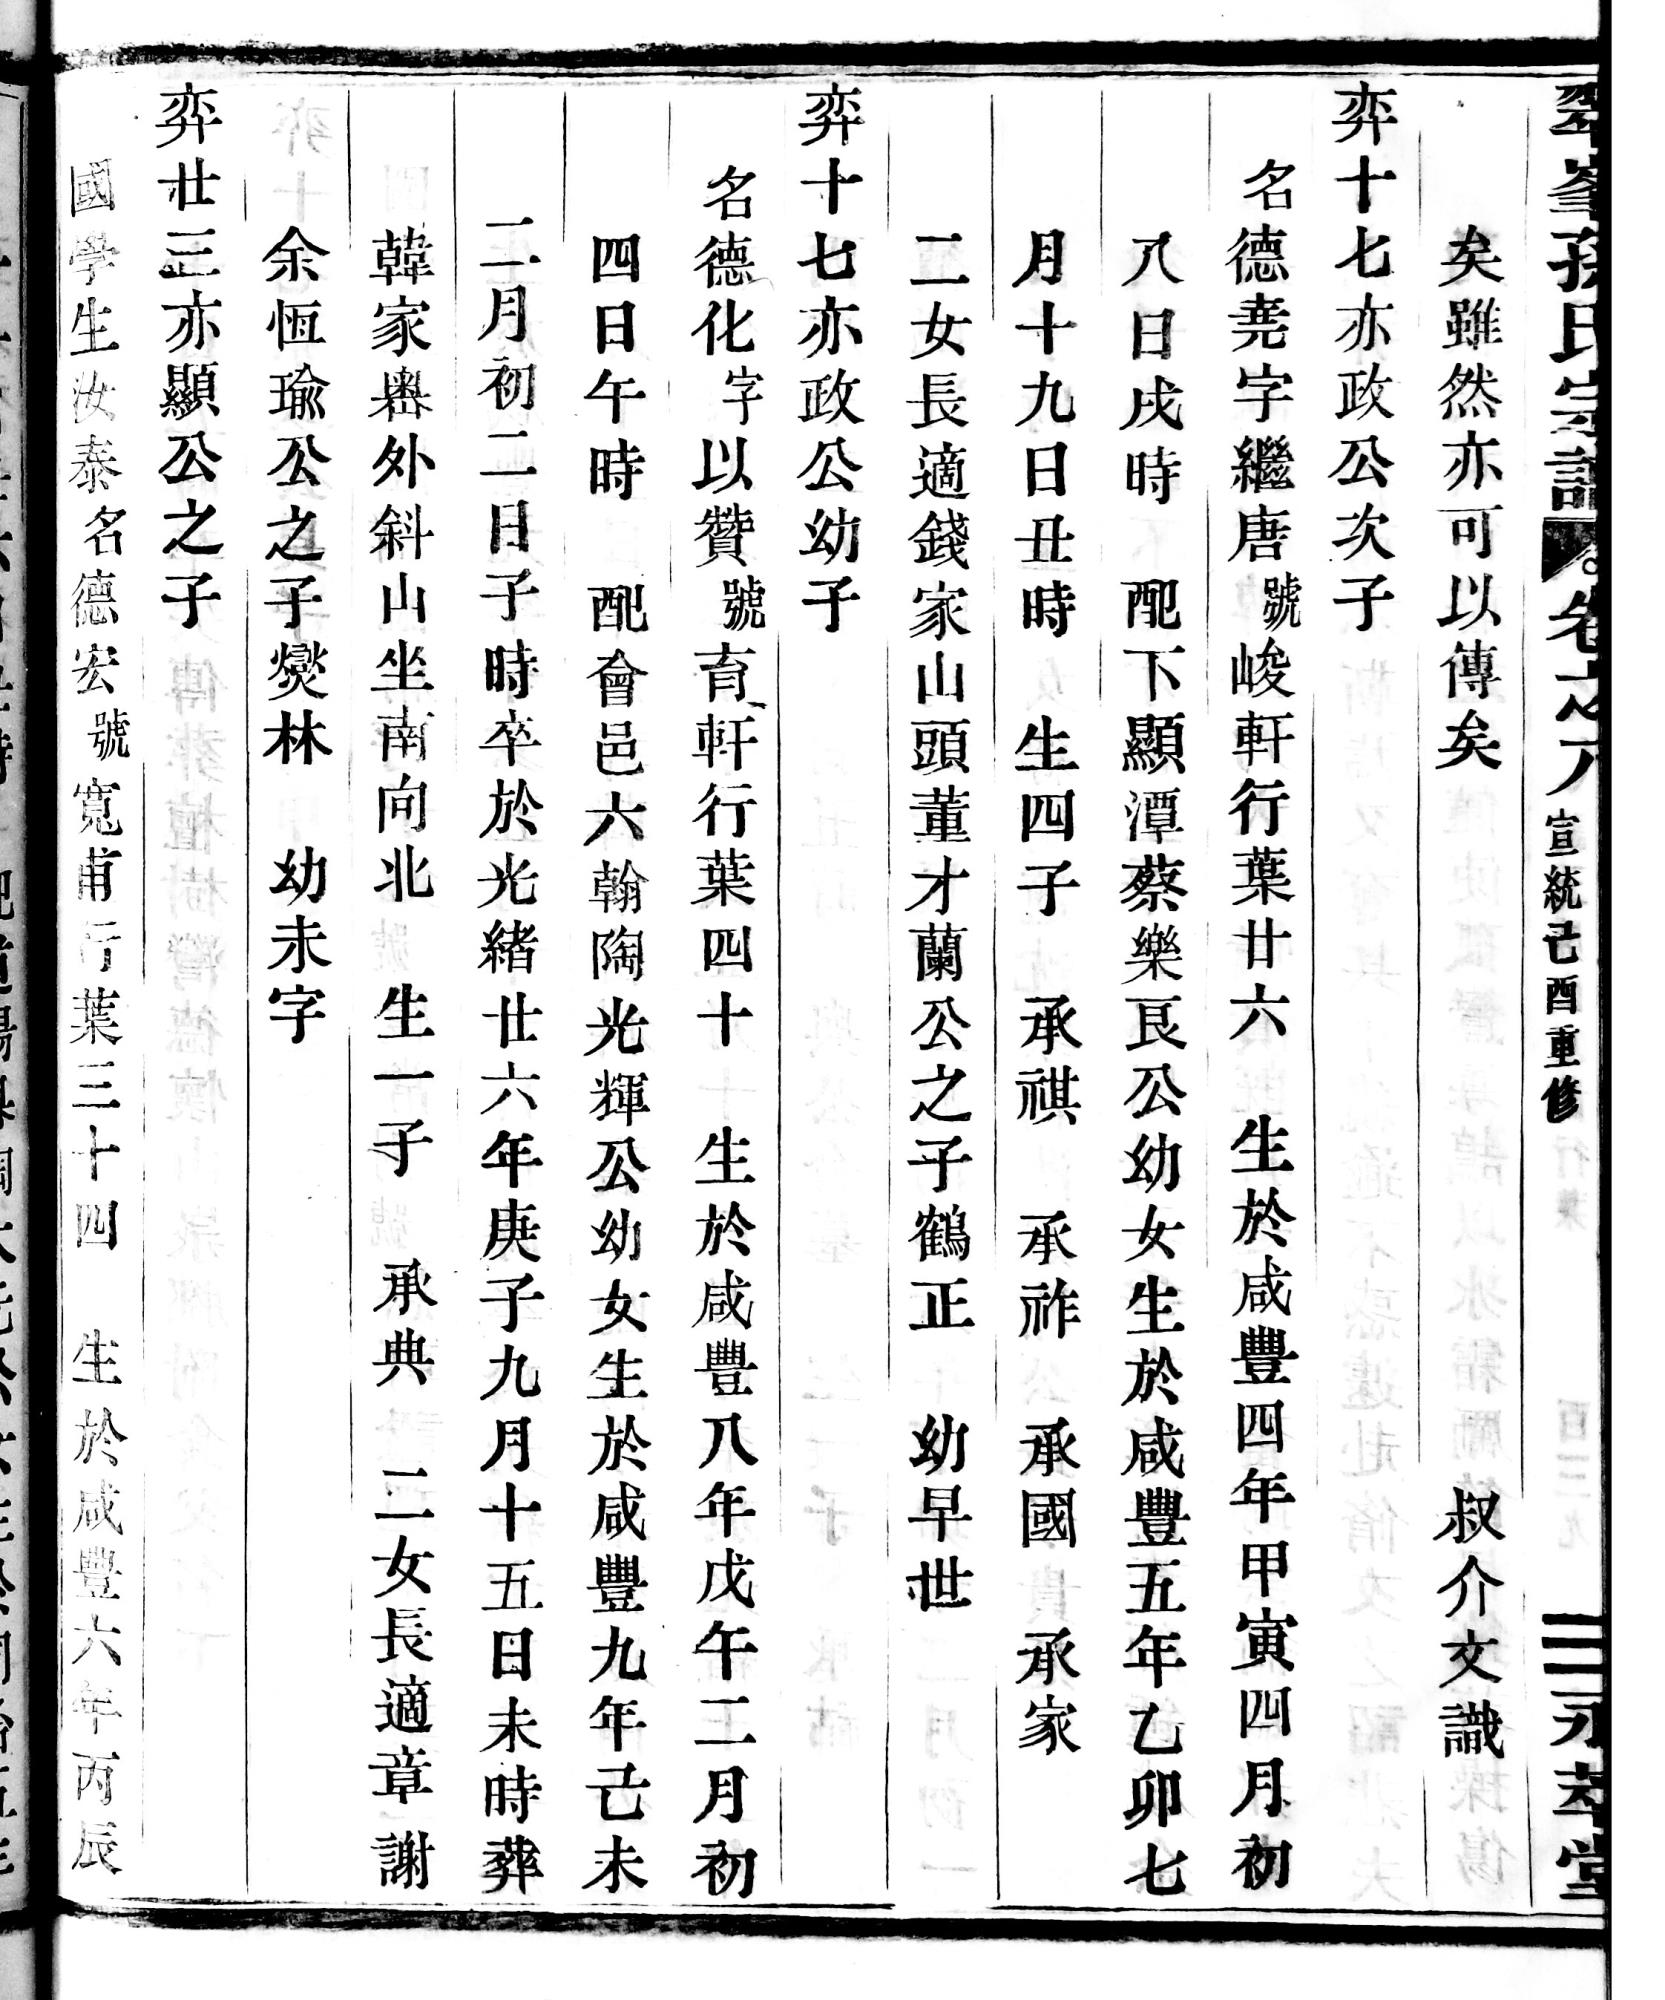 孫氏宗譜 卷之八 宣統己酉重修 永萃堂
矣雖然亦可以傳矣 叔介文識
弈十七亦政公次子
名德堯字繼唐號峻軒行葉廿六 生於咸豐四年甲寅四月初
八日戌時 配下顯潭蔡樂艮公幼女生於咸豐五年乙卯七
月十九日丑時 生四子 承祺 承祚 承國 承家
二女長適錢家山頭董才蘭公之子鶴正 幼早世
弈十七亦政公幼子
名德化字以贊號育軒行葉四十 生於咸豐八年戊午二月初
四日午時 配會邑六翰陶光輝公幼女生於咸豐九年己未
二月初二日子時卒於光緒廿六年庚子九月十五日未時葬
韓家嶴外斜山坐南向北 生一子 承典 二女長適章謝
余恆瑜公之子燮林 幼未字
弈廿三亦顯公之子
國學生汝泰名德宏號寬甫行葉三十四 生於咸豐六年丙辰